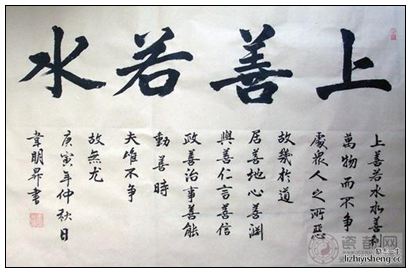 上善若水
上善若水水善利
萬物而不争
處衆人之所惡
故幾於道
居善地心善淵
與善仁言善信
政善治事善能
動善時
夫唯不争
故無尤
庚寅年仲秋日
韋明昇書
lizhiyisheng.cc